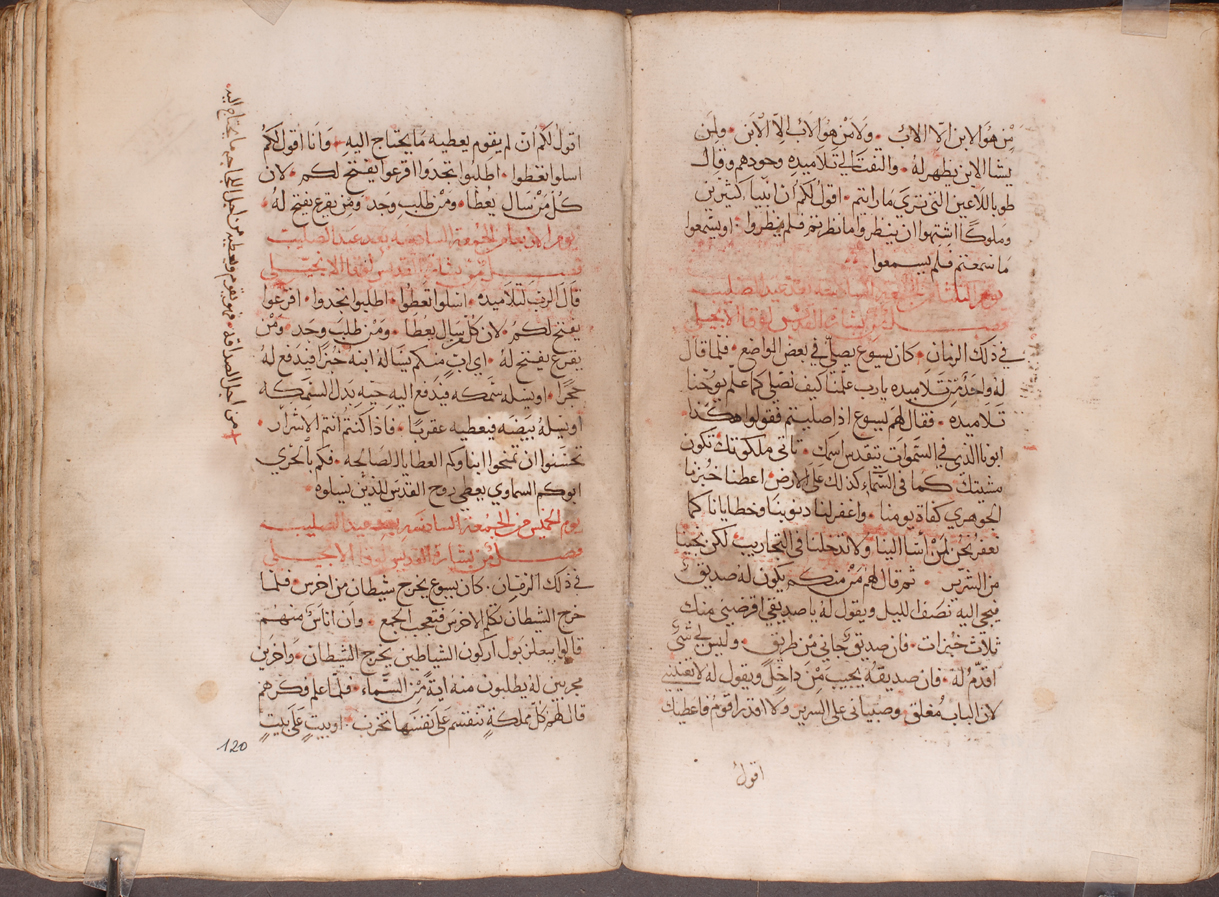 مَن هُوَ الابن الّا الابُ • وَلا مَن هُو الاب الّا الابن • ولمن
يشا الابن يظهر لهُ • والتفت الى تلاميذه وحدهم وقال
طوبا للاعين التي ترى ما رايتم • اقول لكم ان انبيا كثيرين
وملوكًا اشتهوا ان ينظروا ما نظرتم فلم ينظروا • او يسمعوا
ما سمعتم فلم يسمعوا
يوم الثلثا من الجمعه السادسه بعد عيد الصليب
فصل من بشارة القديس لوقا الانجيلي
في ذلك الزمان • كان يسوع يصلي في بعض المواضع • فلما قال
له واحد من تلاميذه يا رب علمنا كيف نصلي كما علّم يوحنا
تلاميذه • فقال لهم يسوع اذا صليتم فقولوا هكذا •
ابونا الذي في السموات يتقدس اسمك • تاتي ملكوتك تكون
مشيتك • كما في السَّماء كذلك على الارض • اعطنا خبزنا
الجوهري كفاة يومنا • واغفر لنا ذنوبنا وخطايانا كما
نغفر نحن لمن أسا الينا • ولا تدخلنا في التجارب • لكن نجينا
من الشرير • ثم قال لهم مَن منكم يكون له صديق
فيجي اليه نصف الليل ويقول لهُ يا صديقي اقرضني منك
ثلاث خبزات • فان صديق جاني من طريق • وليس لي شي
اقدم لهُ • فان صديقهُ يجيب من داخل ويقول له لا تعنيني
لان الباب مُغلق • وصبياني على السرير ولا اقدر اقوم فاعطيك
اقول
اقول لكم ان لم يقوم يعطيه مَا يحتاج اليه • وَانا اقول لكم
اسلوا تعطوا • اطلبوا تجدوا اقرعوا يفتح لكم • لان
كُل مَن سال يعُطا • ومَن طلب وجد • ومَن يقرع يفتح له •
يوم الاربعا من الجمعة السادسه بعد عيد الصليب
فصل من بشارة القديس لوقا الانجيلي
قال الرب لتلاميذه • اسلوا تعطوا • اطلبوا تجدوا • اقرعوا
يفتح لكم • لان كل من سال يعُطا • ومَن طلب وجد • ومَن
يقرع يفتح له • اي اب منكم يساله ابنه خُبزًا فيدفع له
حجرًا • او يسله سمكه فيدفع اليه حيه بدل السمكه
او يسلهُ بيضه فيعطيه عقربًا • فاذا كنتم انتم الاشرار •
تحسنوا ان تمنحوا ابناوكم العطايا الصالحه • فكم بالحري
ابوكم السماوي يعطي روح القدس للذين يسلوه •
يوم الخميس من الجمعة السادسه بعد عيد الصليب
فصل من بشارة القديس لوقا الانجيلي
في ذلك الزمان • كان يسوع يخرج شيطان من اخرس • فلما
خرج الشيطان تكلم الاخرس فتعجب الجمع • وان اناسٌ منهم
قالوا ببعلزبول اركون الشياطين يخرج الشيطان • واخرين
مجربين له يطلبون منه ايةً من السَّماء • فلما علم فكرهم
قال لهم كل مملكةٍ تنقسم على نفسها تخرب • او بيتٍ على بيتٍ
من اجل الصداقه • فهو يقوم ويعطيه من اجل الحاجه ما يحتاج اليه •
120